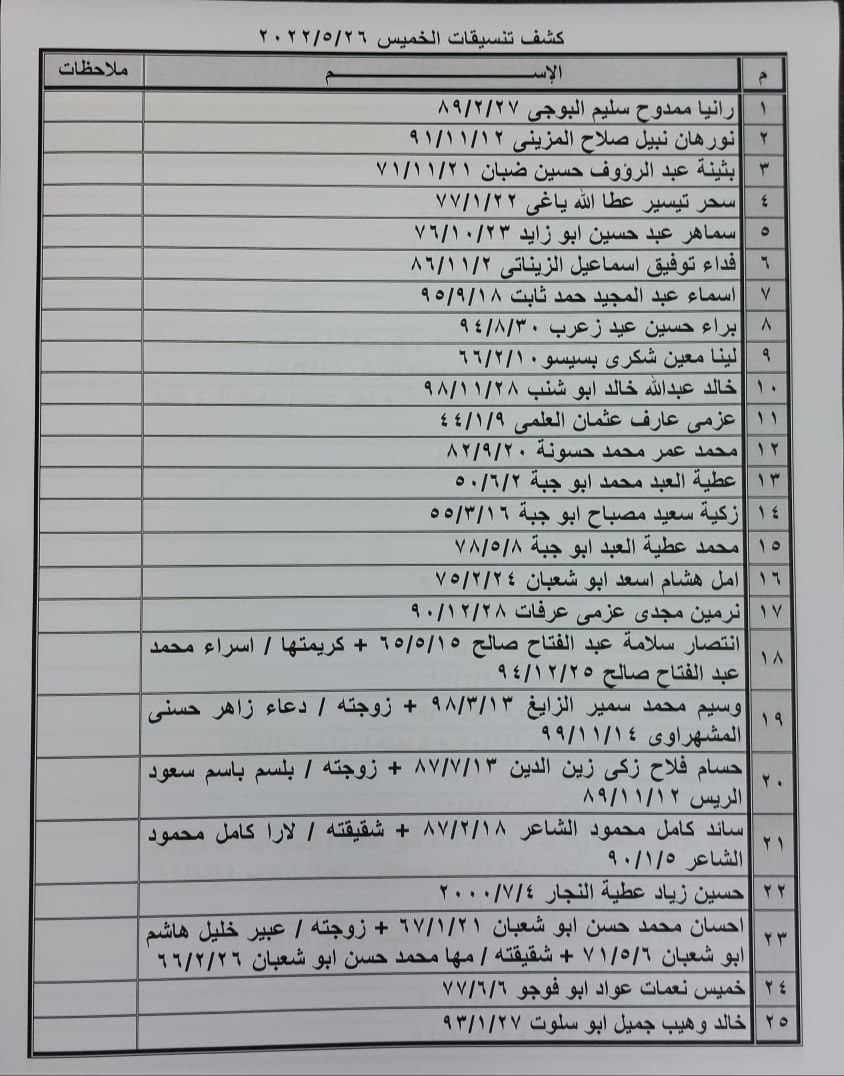 كشف تنسيقات الخميس ٢٠٢٢/٥/٢٦
م الإســـــــــــم ملاحظات
١ رانيا ممدوح سليم البوجى ٨٩/٢/٢٧
٢ نورهان نبيل صلاح المزينى ٩١/١١/١٢
٣ بثينة عبد الرؤوف حسين ضبان ٧١/١١/٢١
٤ سحر تيسير عطا الله ياغى ٧٧/١/٢٢
٥ سماهر عبد حسين ابو زايد ٧٦/١٠/٢٣
٦ فداء توفيق اسماعيل الزيناتى ٨٦/١١/٢
٧ اسماء عبد المجيد حمد ثابت ٩٥/٩/١٨
٨ براء حسين عيد زعرب ٩٤/٨/٣٠
٩ لينا معين شكرى بسيسو ٦٦/٢/١٠
١٠ خالد عبدالله خالد ابو شنب ٩٨/١١/٢٨
١١ عزمى عارف عثمان العلمى ٤٤/١/٩
١٢ محمد عمر محمد حسونة ٨٢/٩/٢٠
١٣ عطية العبد محمد ابو جبة ٥٠/٦/٢
١٤ زكية سعيد مصباح ابو جبة ٥٥/٣/١٦
١٥ محمد عطية العبد ابو جبة ٧٨/٥/٨
١٦ امل هشام اسعد ابو شعبان ٧٥/٢/٢٤
١٧ نرمين مجدى عزمى عرفات ٩٠/١٢/٢٨
١٨ انتصار سلامة عبد الفتاح صالح ٦٥/٥/١٥ + كريمتها / اسراء محمد
عبد الفتاح صالح ٩٤/١٢/٢٥
١٩ وسيم محمد سمير الزايغ ٩٨/٣/١٣ + زوجته / دعاء زاهر حسنى
المشهراوى ٩٩/١١/١٤
٢٠ حسام فلاح زكى زين الدين ٨٧/٧/١٣ + زوجته / بلسم باسم سعود
الريس ٨٩/١١/١٢
٢١ سائد كامل محمود الشاعر ٨٧/٢/١٨ + شقيقته / لارا كامل محمود
الشاعر ٩٠/١/٥
٢٢ حسين زياد عطية النجار ٢٠٠٠/٧/٤
٢٣ احسان محمد حسن ابو شعبان ٦٧/١/٢١ + زوجته / عبير خليل هاشم
ابو شعبان ٧١/٥/٦ + شقيقته / مها محمد حسن ابو شعبان ٦٦/٢/٢٦
٢٤ خميس نعمات عواد ابو فوجو ٧٧/٦/٦
٢٥ خالد وهيب جميل ابو سلوت ٩٣/١/٢٧